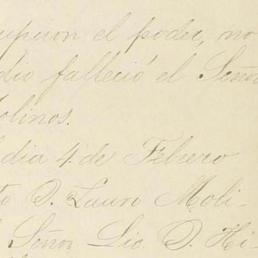 el poder, no
dio falleció el Señor
Molinos.
dia 4 de Febrero
D. Lauro Moli-
Señor Lic. D. Hi-